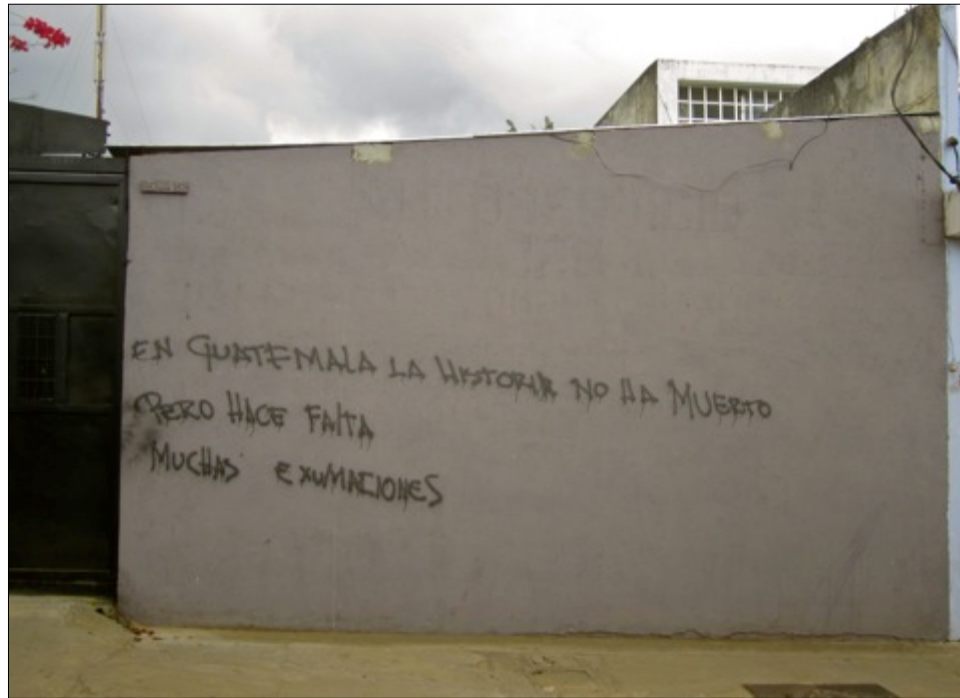 EN GUATEMALA LA HISTORIA NO HA MUERTO
PERO HACE FALTA
MUCHAS EXUMACIONES